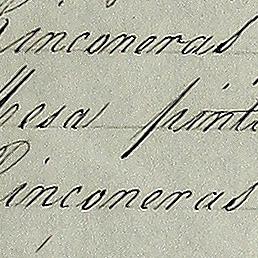 Rinconeras
Mesa pinta
Rinconeras